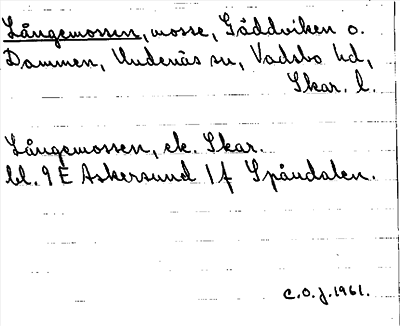 Långemossen, mosse, Gäddviken o.
Dammen, Undenäs sn, Vadsbo hd,
Skar. l.
Långemossen, ek. Skar.
bl. 9 E Askersund 1 f Spåndalen.
C.O.J. 1961.